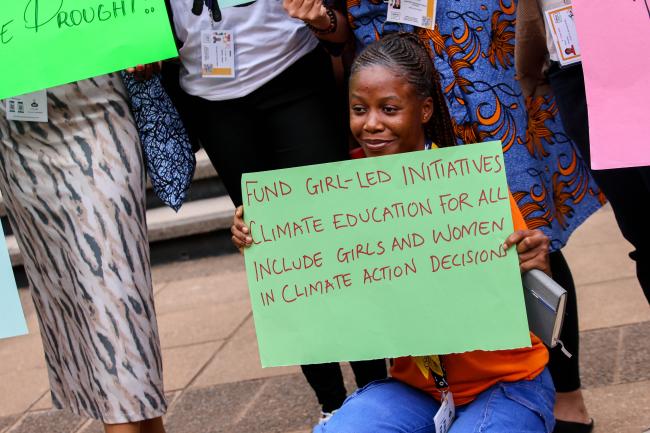 E DROUGHT!!
FUND GIRL-LED INITIATIVES
CLIMATE EDUCATION FOR ALL
INCLUDE GIRLS AND WOMEN
IN CLIMATE ACTION DECISIONS